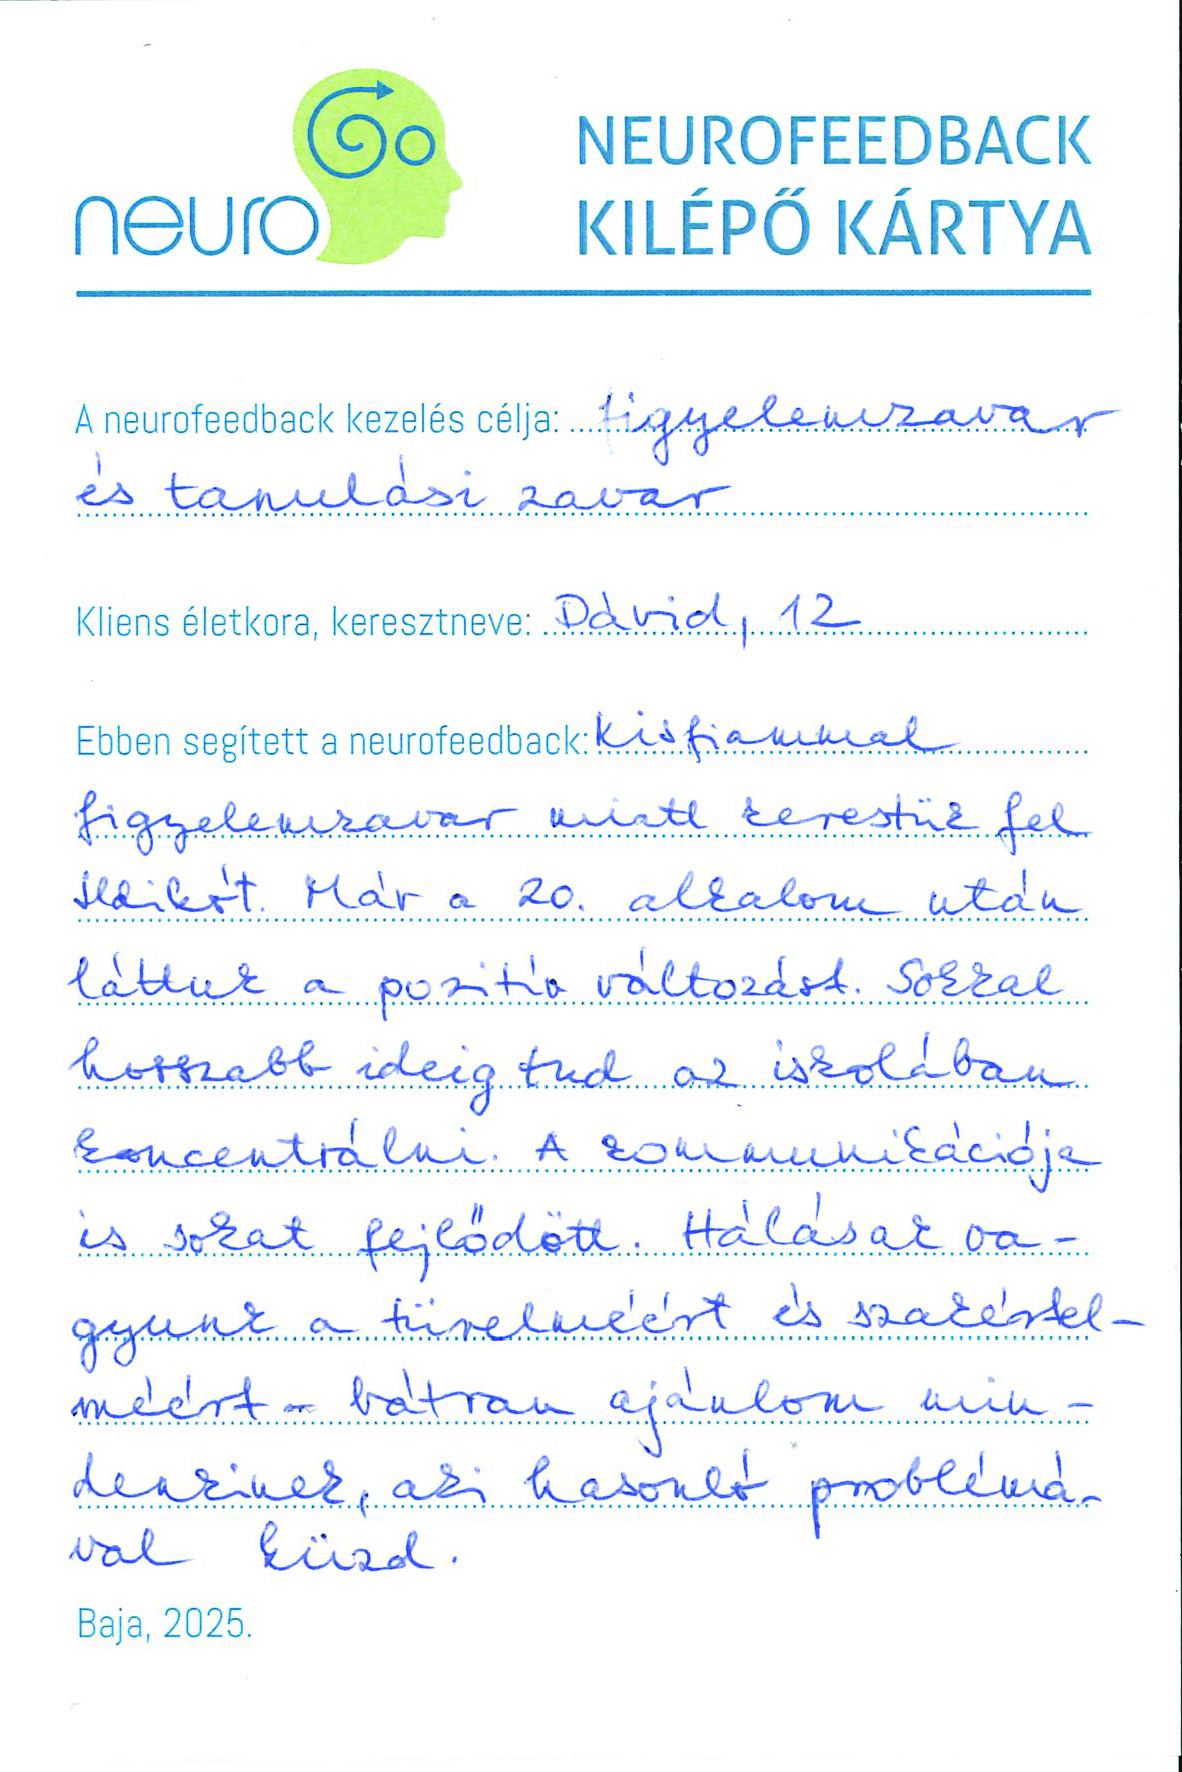 neuro
NEUROFEEDBACK
KILÉPŐ KÁRTYA
A neurofeedback kezelés célja: figyelemzavar
és tanulási zavar
Kliens életkora, keresztneve: Dávid, 12
Ebben segített a neurofeedback: Kisfiammal
figyelemzavar miatt kerestük fel
Ildikót. Már a 20. alkalom után
láttuk a pozitív változást. Sokkal
hosszabb ideig tud az iskolában
koncentrálni. A kommunikációja
is sokat fejlődött. Hálásak va-
gyunk a türelméért és szakértel-
méért - bátran ajánlom min-
denkinek, aki hasonló problémá-
val küzd.
Baja, 2025.